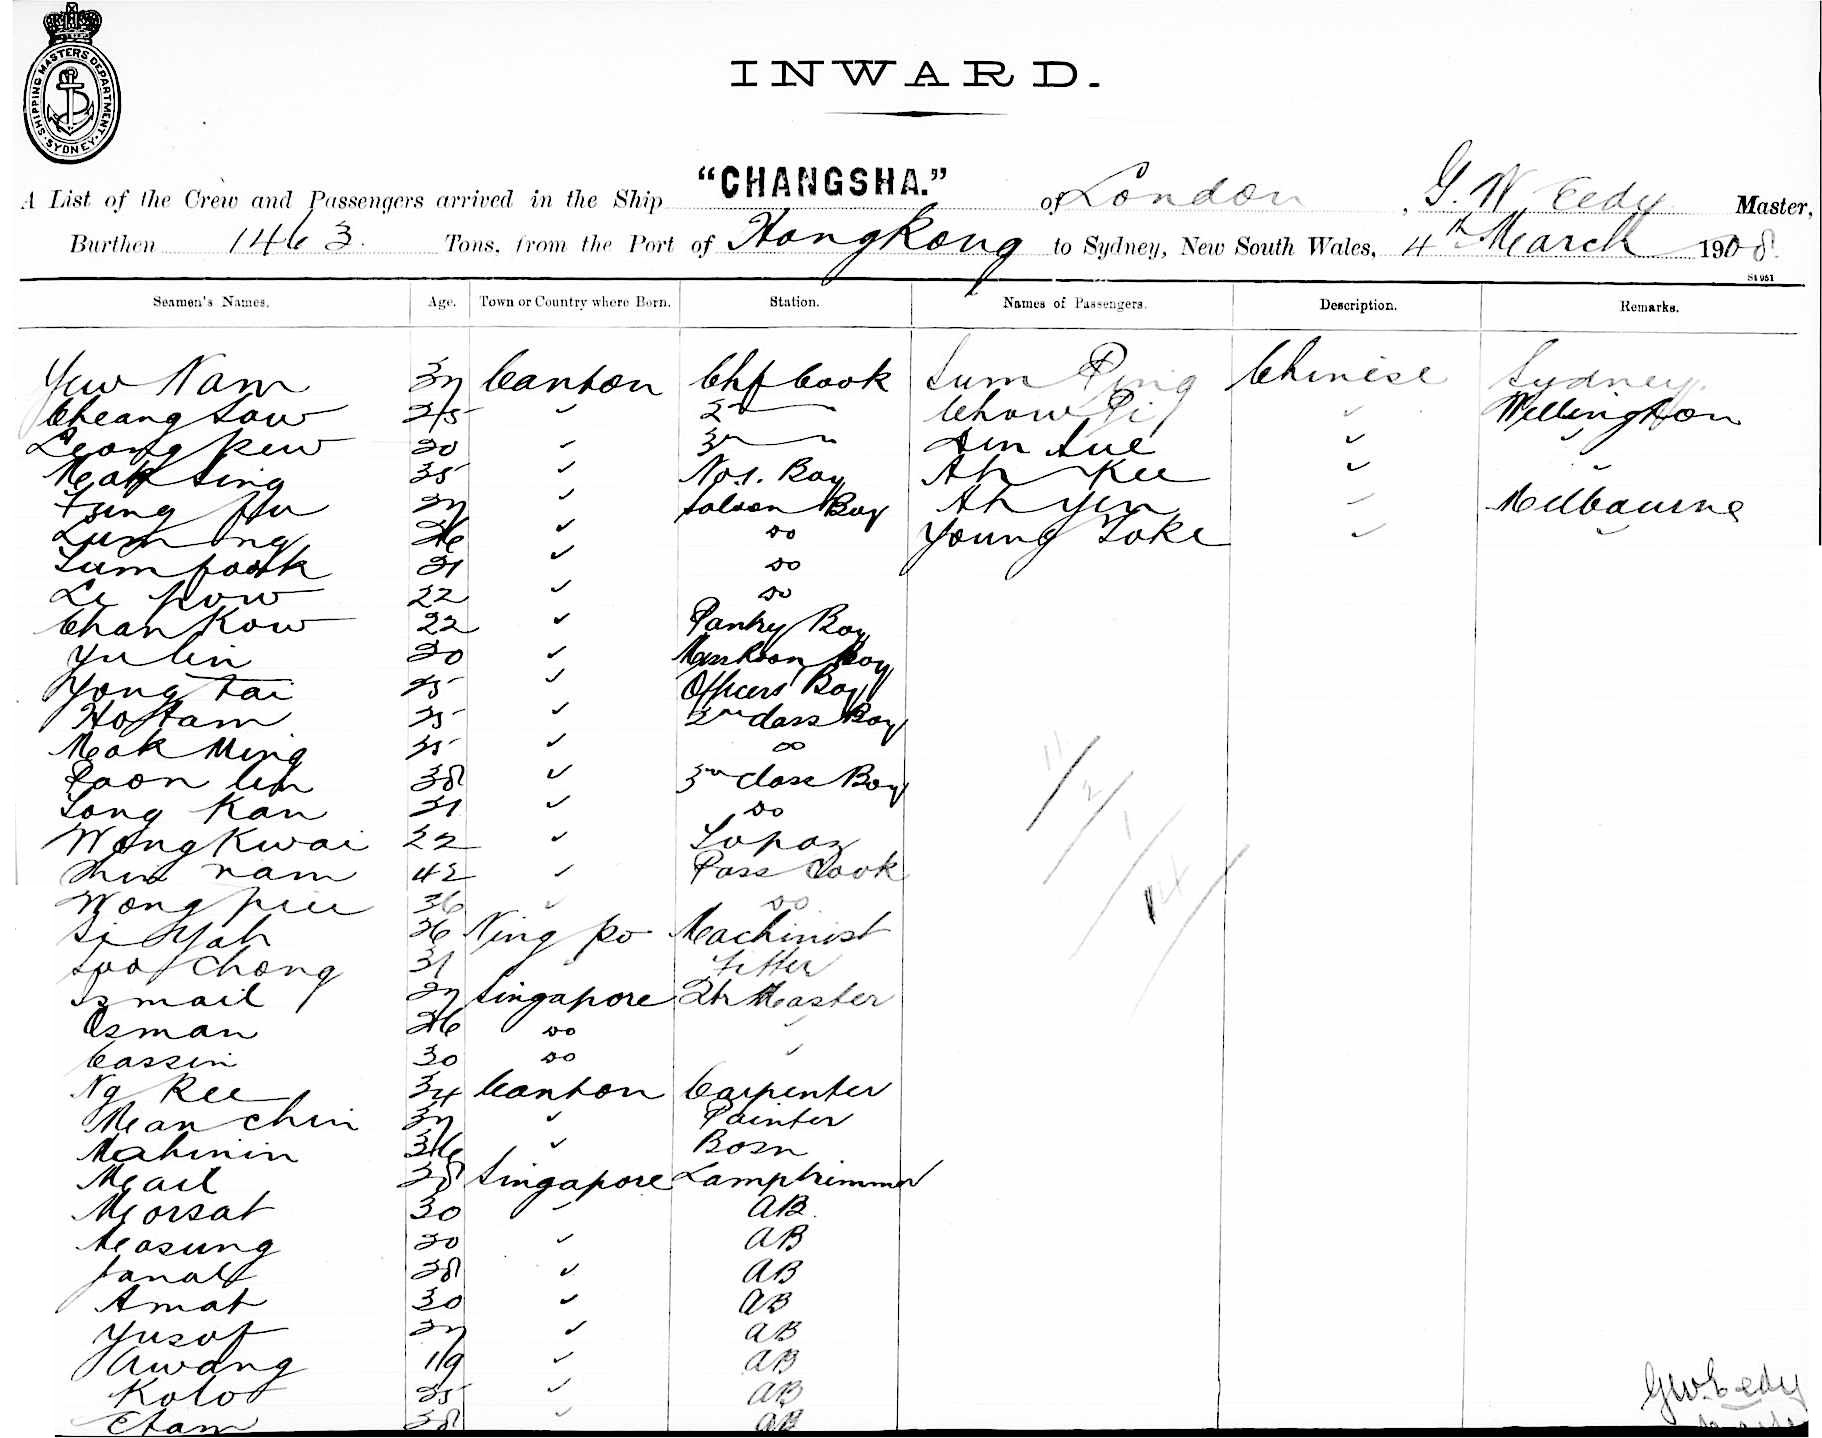 SHIPPING MASTERS DEPARTMENT
SYDNEY
INWARD.
A List of the Crew and Passengers arrived in the Ship "CHANGSHA." of London, G. W Eedy Master,
Burthen 1463. Tons, from the Port of HongKong to Sydney, New South Wales, 4th March 1908.
St 951
Seamen's Names. Age. Town or Country where Born. Station. Names of Passengers. Description. Remarks.
Yew Nam 37 Canton Chf Cook Sum Ping Chinese Sydney.
Cheang Sow 25 " 2nd " Chow Wellington
Leong kew " 3rd " Sue "
Mak Sing 35 " No 1. Boy Ah Kee " "
Tsing Fu 27 " Saloon Boy Ah Yen " Melbourne
Lum ng 26 " do Young Loke " "
Lum 21 " do
Le pow 22 " do
Chan Kow 22 " Pantry Boy
Yu lin " Messroom Boy
Yong tai 25 " Officers Boy
Ho tam 25 " 2nd class Boy
Mak Ming " do
Paon lin 38 " 3rd class Boy
Song Kan " do
Wong Kwai 22 " Topaz
nam 42 " Pass Cook
Wong 36 " do
Si Yah 26 Ning po Machinist
Soo Chong 31 Fitter
Ismail 27 Singapore Qtr Master
Osman 26 do "
Cassin 30 do "
Ng Kee 34 Canton Carpenter
Man chin 37 " Painter
Mahinin 36 " Bosn
Mail 38 Singapore Lamptrimmer
Morsat 30 " AB.
Masung " AB
" AB
Amat 30 " AB
Yusof 27 " AB
Awang 19 " AB
Kolot 25 " AB
Etam 38 " AB
11/2/1/14
GW. Eedy